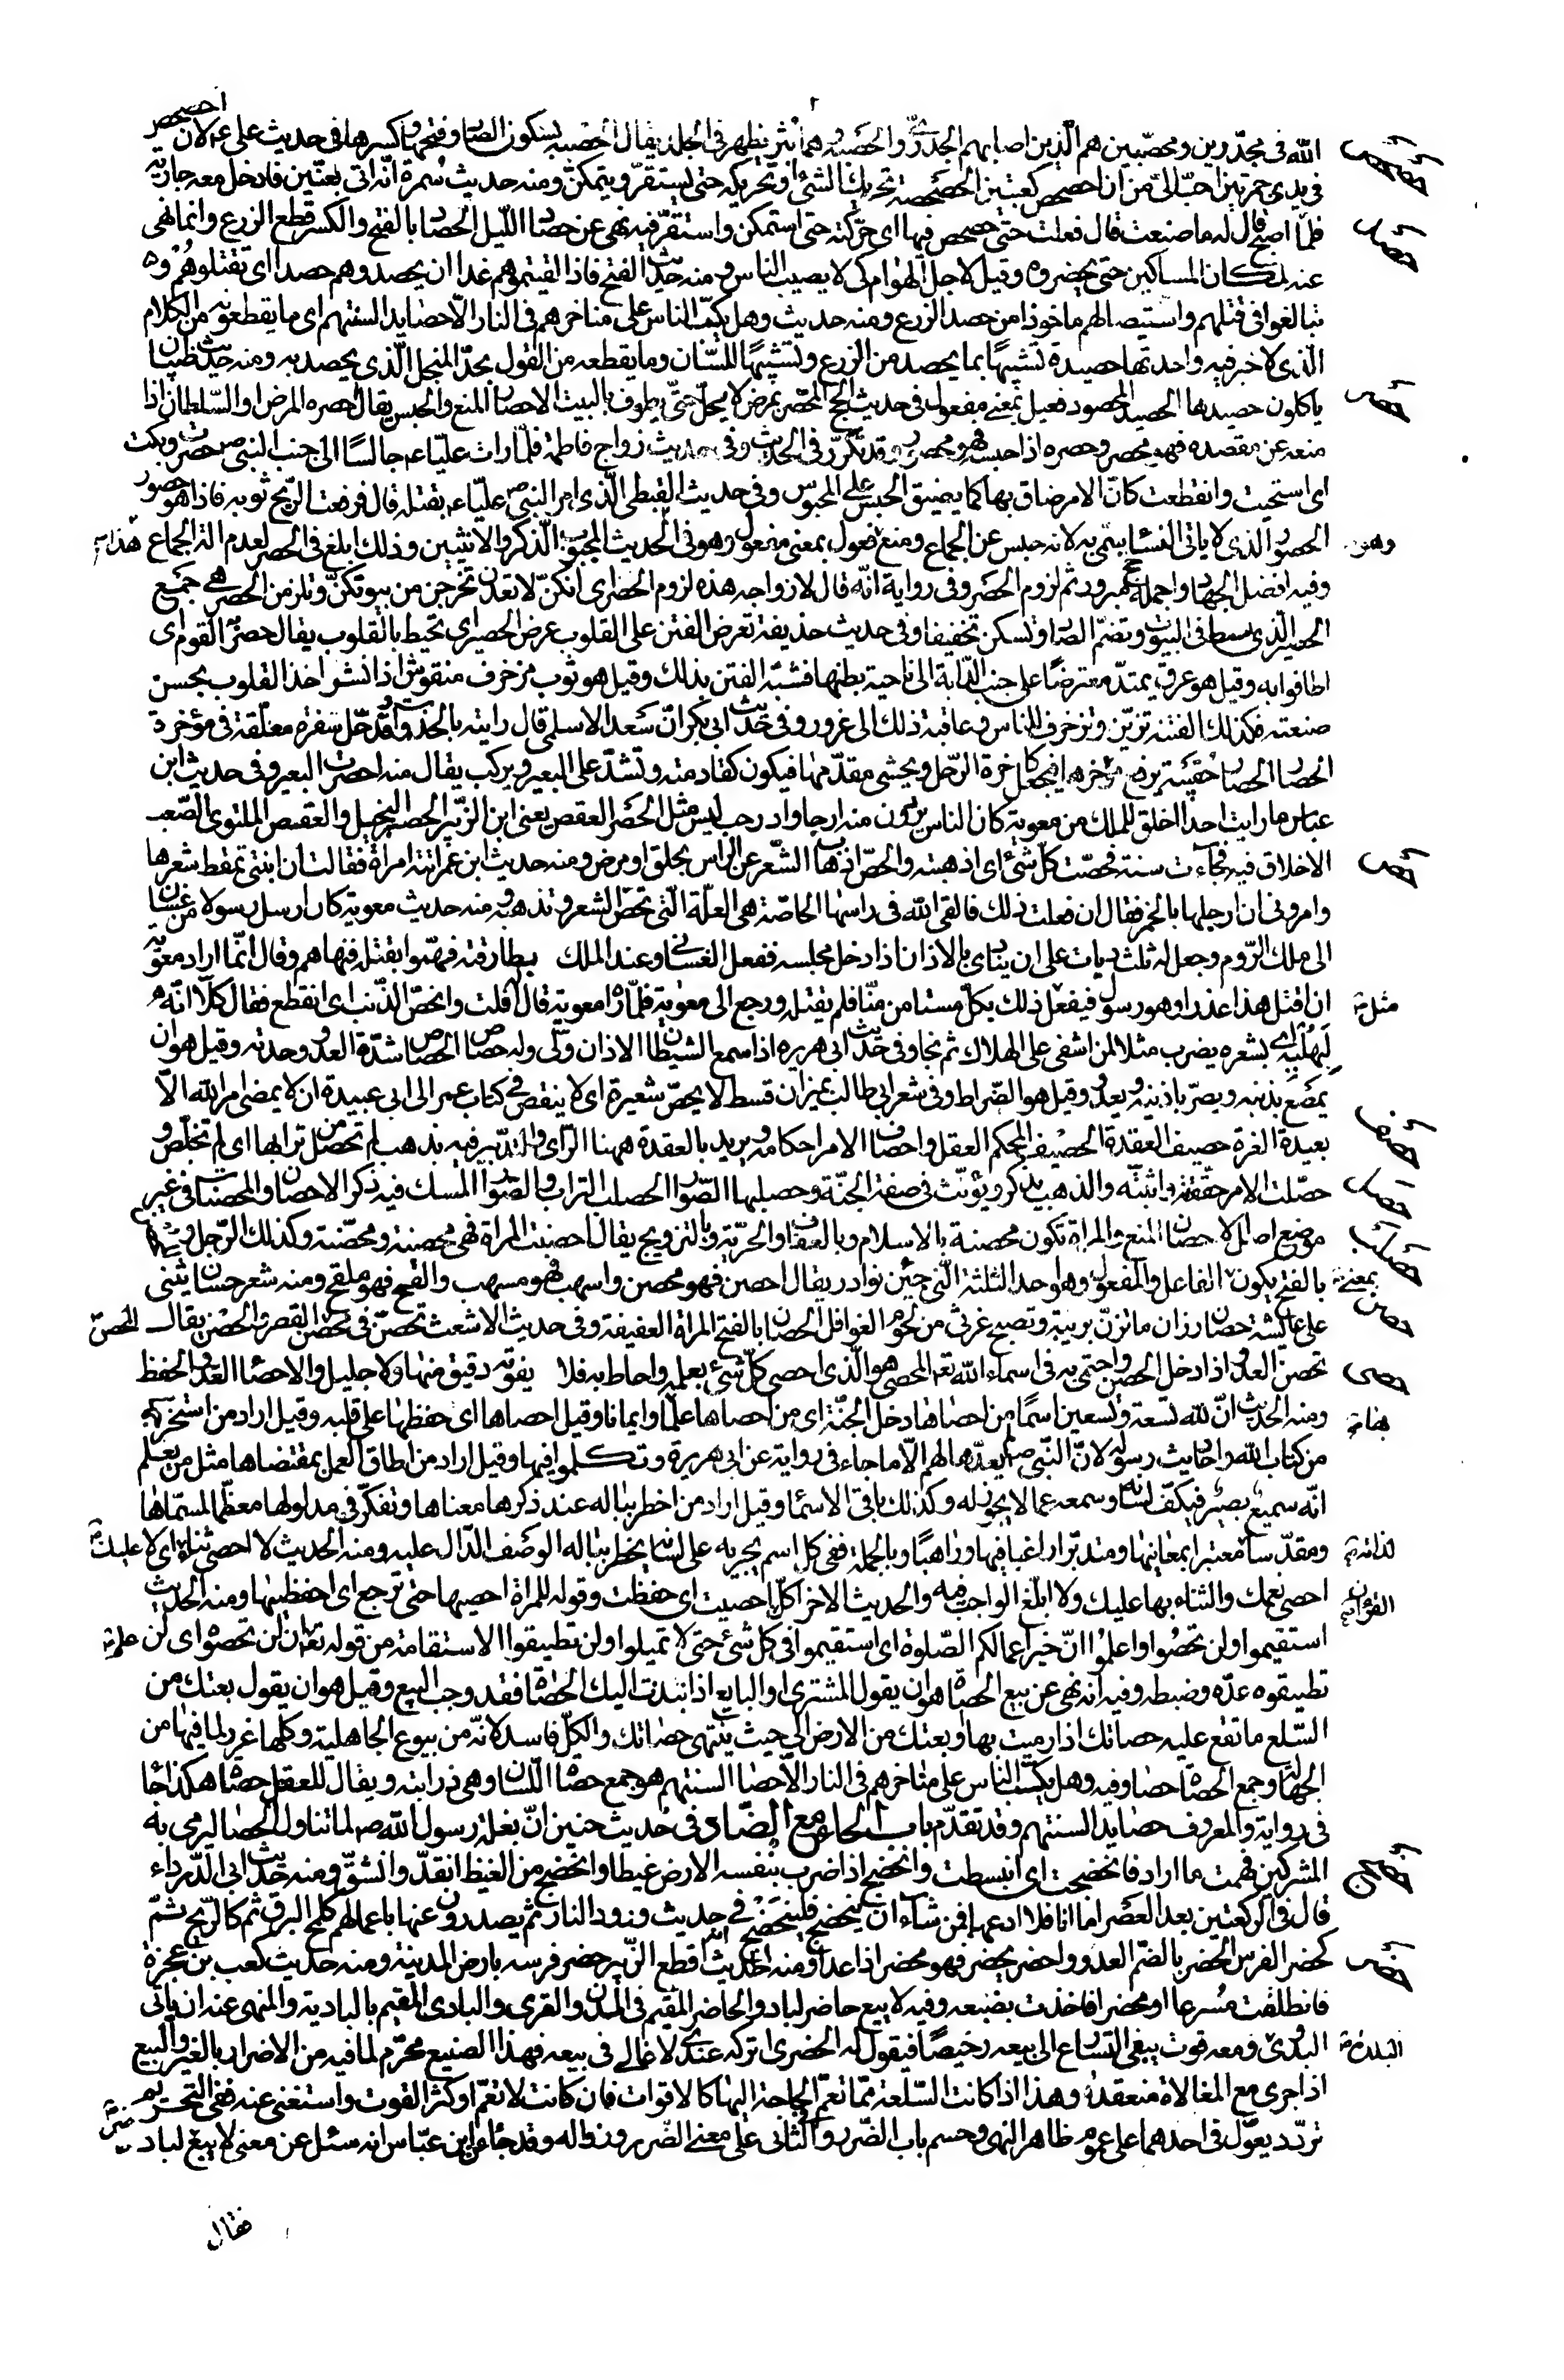 الله فى مجدّرين ومحصّبين هم الّذين اصابهم الجدرىّ والحصبة وهما بثر تظهر فى الجلد يقال الحصبة بسكون الصاد وفتحها وكسرها فى حديث على ع لان احصحص
فى يدى جمرتين احبّ الىّ من ان احصحص كعبتين الحصحصة تحريك الشئ او تحريكه حتى يستقرّ ويتمكّن ومنه حديث سمرة انّه اتى بعنّين فادخل معه جارية
فلمّا اصبح قال له ما صنعت قال فعلت حتى حصحص فيها اى حرّكته حتى استمكن واستقرّ فيه نهى عن حصاد اللّيل الحصاد بالفتح والكسر قطع الزرع وانما نهى
عنه لمكان المساكين حتى يحضروه وقيل لاجل الهوام كى لا يصيب الناس ومنه حديث الفتح فاذا لقيتموهم غدا ان يحصدوهم حصدا اى تقتلوهم و
تبالغوا فى قتلهم واستيصالهم ماخوذا من حصد الزرع ومنه حديث وهل يكبّ الناس على مناخرهم فى النار الّا حصايد السنتهم اى ما يقطعونه من الكلام
الّذى لا خير فيه واحدتها حصيدة تشبيها بما يحصد من الزرع وتشبيها للسّان وما يقطعه من القول بحدّ المنجل الّذى يحصد به ومنه حديث ظبيان
ياكلون حصيدها الحصيد المحصود فعيل بمعنى مفعول فى حديث الحج المحصر بمرض لا يحلّ حتى يطوف بالبيت الاحصار المنع والحبس يقال احصره المرض او السّلطان اذا
منعه عن مقصده فهو محصر وحصره اذا حبسه فهو محصور وقد تكرّر فى الحديث وفى حديث زواج فاطمة فلمّا رات عليّا ع جالسًا الى جنب النبى ص حصرت وبكت
اى استحيت وانقطعت كانّ الامر ضاق بها كما يضيق الحبس على المحبوس وفى حديث القبطى الّذى امر النبى ص عليّا ع بقتله قال فرفعت الرّيح ثوبه فاذا هو حصور
الحصور الّذى لا ياتى النساء سمّى به لانه حبس عن الجماع ومنع فعول بمعنى مفعول وهو فى الحديث المجبوب الذكر والانثيين وذلك ابلغ فى الحصر لعدم الة الجماع
وفيه افضل الجهاد واجمله حجّ مبرور ثم لزوم الحصر وفى رواية انّه قال لازواجه هذه ثم لزوم الحصر اى انكنّ لا تعدن تخرجن من بيوتكنّ وتلزمن الحصر هى جمع
الحصير الّذى يبسط فى البيوت وتضمّ الصاد وتسكن تخفيفا وفى حديث حذيفة تعرض الفتن على القلوب عرض الحصير اى تحيط بالقلوب يقال حصر به القوم اى
اطافوا به وقيل هو عرق يمتدّ معترضًا على جنب الدّابة الى ناحية بطنها فشبّه الفتن بذلك وقيل هو ثوب مزخرف منقوش اذا نشر اخذ القلوب بحسن
صنعته فكذلك الفتنة تزيّن وتزخرف للناس وعاقبة ذلك الى غرور وفى حديث ابى بكر انّ سعد الاسلمى قال رايته بالخذوات وقد حلّ سفرة معلّقة فى مؤخرة
الحصار الحصار حقيبة يرفع مؤخرها فيجعل كاخرة الرّحل ويحشى مقدّمها فيكون كقادمته وتشدّ على البعير ويركب يقال منه احصرت البعير وفى حديث ابن
عباس ما رايت احدا اخلق للملك من معوية كان الناس يردون منه ارجاء واد رحب ليس مثل الحصر العقص يعنى ابن الزّبير الحصر البخيل والعقص الملتوى الصّعب
الاخلاق فيه فجاءت سنة فحصّت كلّ شئ اى اذهبته والحصّ اذهاب الشّعر عن الراس بحلق او مرض ومنه حديث ابن عمر اتته امراة فقالت ان ابنتى تمعّط شعرها
وامرونى ان ارجلها بالخمر فقال ان فعلت ذلك فالقى الله فى راسها الحاصّة هى العلّة الّتى تحصّ الشعر وتذهبه ومنه حديث معوية كان ارسل رسولا من غسان
الى ملك الرّوم وجعل له ثلث ديات على ان ينادى بالاذان اذا دخل مجلسه ففعل الغسانى وعند الملك بطارقته فهمّوا بقتله فنهاهم وقال انّما اراد معوية
ان اقتل هذا غدرا وهو رسول فيفعل مثل ذلك بكلّ مستامن منّا فلم يقتله ورجع الى معوية فلمّا راه معوية قال افلت وانحصّ الذّنب اى انقطع فقال كلّا انّه
لبهلبه اى بشعره يضرب مثلا لمن اشفى على الهلاك ثم نجا وفى حديث ابى هريره اذا سمع الشيطان الاذان ولّى وله حصاص الحصاص شدّة العدو وحدّته وقيل هو ان
يمصع بذنبه ويصرّ باذنيه ويعدو وقيل هو الضّراط وفى شعر ابى طالب بميزان قسط لا يحصّ شعيرة اى لا ينقص فى كتاب عمر الى ابى عبيدة ان لا يمضى امر الله الّا
بعيدة الغرة حصيف العقدة الحصيف المحكم العقل واحصاف الامر احكامه ويريد بالعقدة ههنا الرّاى والتّدبير فيه بذهب لم تحصّل من ترابها اى لم تخلّص و
حصّلت الامر حقّقته واثبتّه والذهب يذكر ويؤنّث فى صفة الجنّة وحصلبها الصّوار الحصلب التراب والصّوار المسك فيه ذكر الاحصان والمحصنات فى غير
موضع اصل الاحصان المنع والمراة تكون محصنة بالاسلام وبالعفاف والحرّية وبالتزويج يقال احصنت المراة فهى محصنة ومحصّنة وكذلك الرّجل و
بالفتح يكون بمعنى الفاعل والمفعول وهو احد الثلثة الّتى جئن نوادر يقال احصن فهو محصن واسهب فهو مسهب والفج فهو ملفج ومنه شعر حسان يثنى
على عائشة حصان رزان ما تزنّ بريبة وتصبح غرثى من لحوم الغوافل الحصان بالفتح المراة العفيفة وفى حديث الاشعث تحصّن فى محصن المحصن القصر والحصن يقال
تحصّن العدوّ اذا دخل الحصن واحتمى به فى اسماء الله تعالى المحصى هو الّذى احصى كلّ شئ بعلمه واحاط به فلا يفوته دقيق منها ولا جليل والاحصاء العدّ والحفظ
ومنه الحديث انّ لله تسعة وتسعين اسمًا من احصاها دخل الجنّة اى من احصاها علما بها وايمانا وقيل احصاها اى حفظها على قلبه وقيل اراد من استخرجها
من كتاب الله واحاديث رسوله لانّ النّبى ص لم يعدّها لهم الّا ما جاء فى رواية عن ابى هريرة وتكلموا فيها وقيل اراد من اطاق العمل بمقتضاها مثل من يعلم
انّه سميع بصير فيكفّ لسانه وسمعه عما لا يجوز له وكذلك باقى الاسماء وقيل اراد من اخطر بباله عند ذكرها معناها وتفكّر فى مدلولها معظّما لمسمّاها
ومقدّسا لذاته معتبرا بمعانيها ومتدبّرا راغبا فيها وراهبًا وبالجملة ففى كل اسم يجريه على لسانه يخطر بباله الوصف الدّال عليه ومنه الحديث لا احصى ثناء عليك اى لا
احصى نعمك والثناء بها عليك ولا ابلغ الواجب فيه والحديث الاخر اكلّ القران احصيت اى حفظت وقوله للمراة احصيها حتى ترجع اى احفظيها ومنه الحديث
استقيموا ولن تحصوا واعلموا انّ خير اعمالكم الصّلوة اى استقيموا فى كل شئ حتى لا تميلوا ولن تطيقوا الاستقامة من قوله تعالى علم ان لن تحصوه اى لن
تطيقوه عدّه وضبطه وفيه انه نهى عن بيع الحصاة هو ان يقول المشترى او البايع اذا نبذت اليك الحصاة فقد وجب البيع وقيل هو ان يقول بعتك من
السّلع ما تقع عليه حصاتك اذا رميت بها او بعتك من الارض الى حيث تنتهى حصاتك والكلّ فاسد لانّه من بيوع الجاهلية وكلها غرر لما فيها من
الجهالة وجمع الحصاة حصا وفيه وهل يكبّ الناس على مناخرهم فى النار الّا حصا السنتهم هو جمع حصاة اللّسان وهى ذرابته ويقال للعقل حصاة هكذا جاء
فى رواية والمعروف حصايد السنتهم وقد تقدّم باب الحاء مع الضّاد فى حديث حنين انّ بغلة رسول الله ص لما تناول الحصا ليرمى به
المشركين فهمت ما اراد فانحضجت اى انبسطت وانحضج اذا ضرب بنفسه الارض غيظا وانحضج من الغيظ انقدّ وانشقّ ومنه حديث ابى الدّرداء
قال فى الركعتين بعد العصر اما انا فلا ادعهما فمن شاء ان ينحضج فلينحضج فى حديث ورود النار ثم يصدرون عنها باعمالهم كلمح البرق ثم كالرّيح ثمّ
كحضر الفرس الحضر بالضّم العدو واحضر يحضر فهو محضر اذا عدا ومنه الحديث انه اقطع الزّبير حضر فرسه بارض المدينة ومنه حديث كعب بن عجرة
فانطلقت مسرعا او محضرا فاخذت بضبعه وفيه لا يبيع حاضر لباد والحاضر المقيم فى المدن والقرى والبادى المقيم بالبادية والمنهى عنه ان ياتى
البدوى البلدة ومعه قوت يبغى التسارع الى بيعه رخيصًا فيقول له الحضرى اتركه عندى لاغالى فى بيعه فهذا الصنيع محرّم لما فيه من الاضرار بالغير والبيع
اذا جرى مع المغالاة منعقد وهذا اذا كانت السّلعة ممّا تعمّ الحاجة اليها كالاقوات فان كانت لا تعمّ او كثر القوت واستغنى عنه ففى التحريم
تردّد يعوّل فى احدهما على عموم ظاهر النهى وحسم باب الضّرر والثانى على معنى الضّرر وزواله وقد جاء عن ابن عبّاس انه سئل عن معنى لا يبيع حاضر لباد
فقال